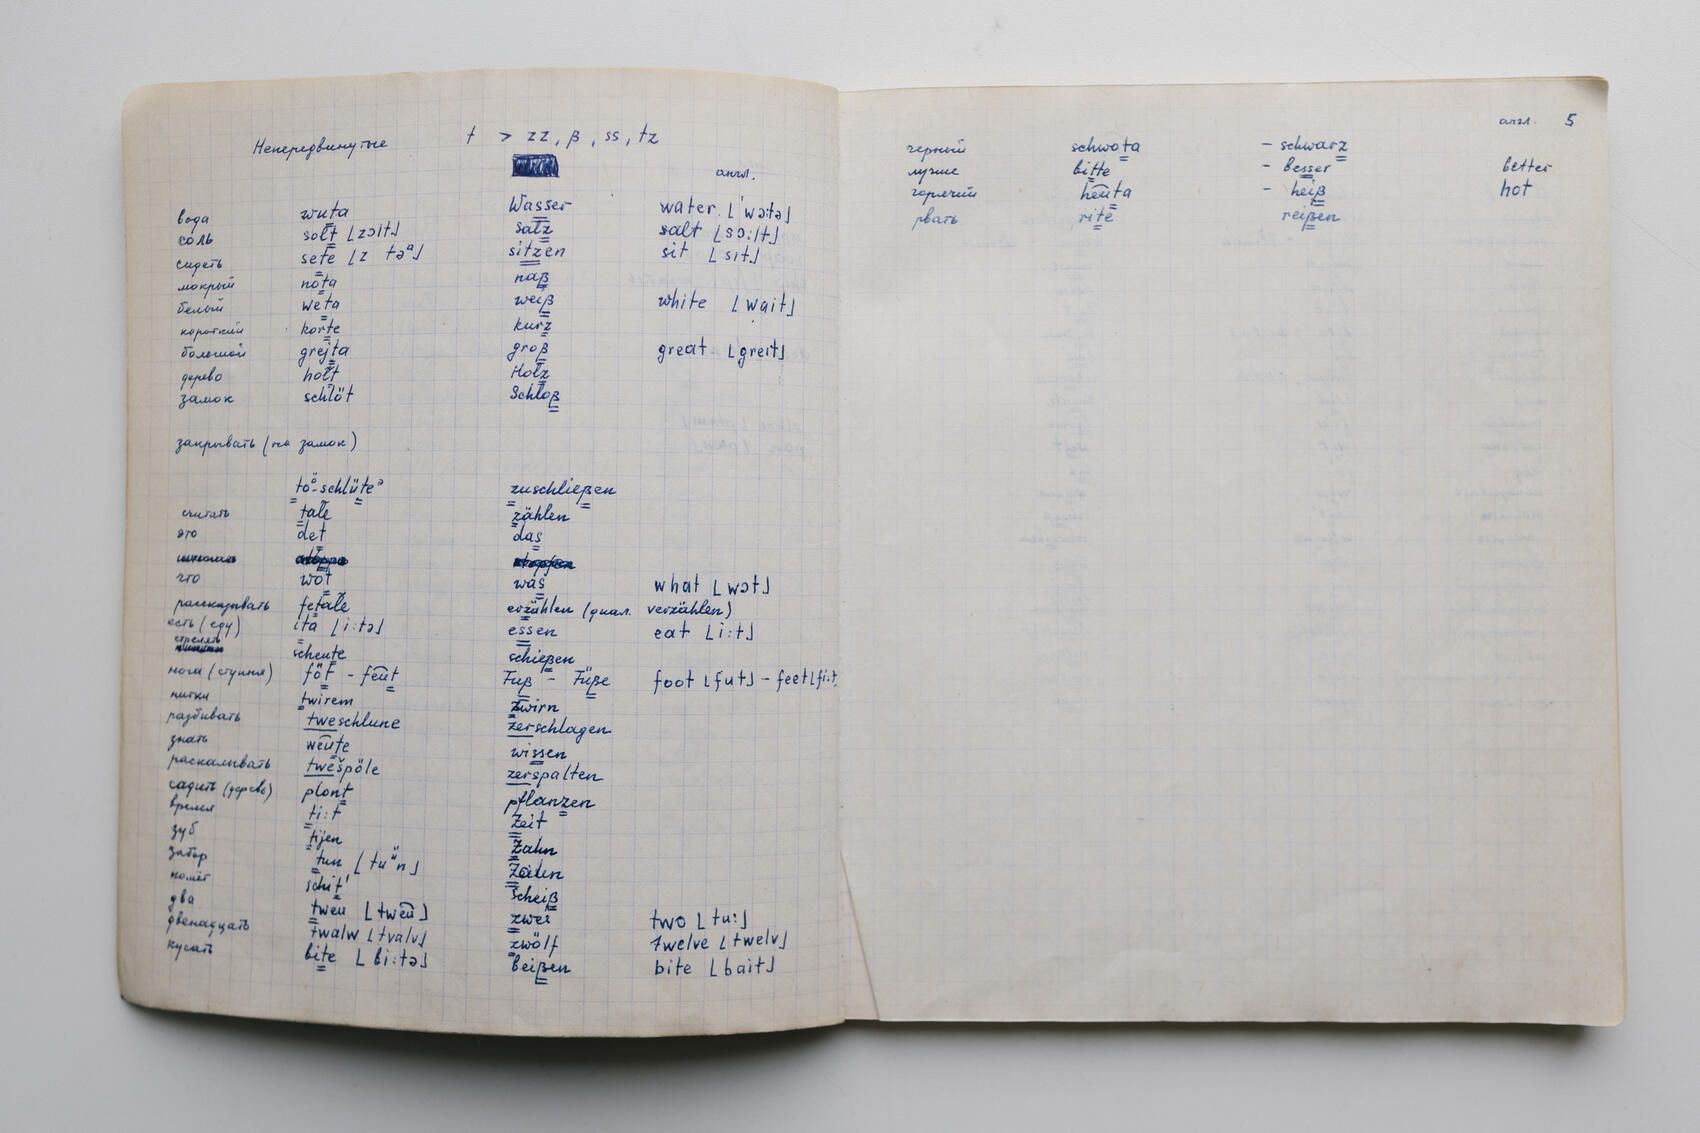 Непередвинутые t > zz, β, ss, tz
англ.
вода wuta Wasser water [ˈwɔ:tə]
соль solt [zɔlt] Salz salt [sɔ:lt]
сидеть sete [z təᵃ] sitzen sit [sɪt]
мокрый nota naβ
белый weta weiβ white [wait]
короткий korte kurz
большой grejta groβ great [greit]
дерево holt Holz
замок schlöt Schloβ
закрывать (на замок)
tö-schlüteᵊ zuschlieβen
считать tale zählen
это det das
что wot was what [wɔt]
рассказывать fetale erzählen (диал. verzählen)
есть (еду) ita [i:tə] essen eat [i:t]
стрелять scheute schieβen
нога (ступня) föt - feut Fuβ - Füβe foot [fut] - feet [fi:t
нитки twirem Zwirn
разбивать tweschlune zerschlagen
знать weute wissen
раскалывать twešpöle zerspalten
садить (дерево) plont pflanzen
время ti:t Zeit
зуб tijen Zahn
забор tun [tuᵘn] Zaun
помёт schit' Scheiβ
два tweu [tweu] zwei two [tu:]
двенадцать twalw [tvalv] zwölf twelve [twelv]
кусать bite [bi:tə] beiβen bite [bait]
англ. 5
черный schwota - schwarz
лучше bitte - besser better
горячий heuta - heiβ hot
рвать rite reiβen